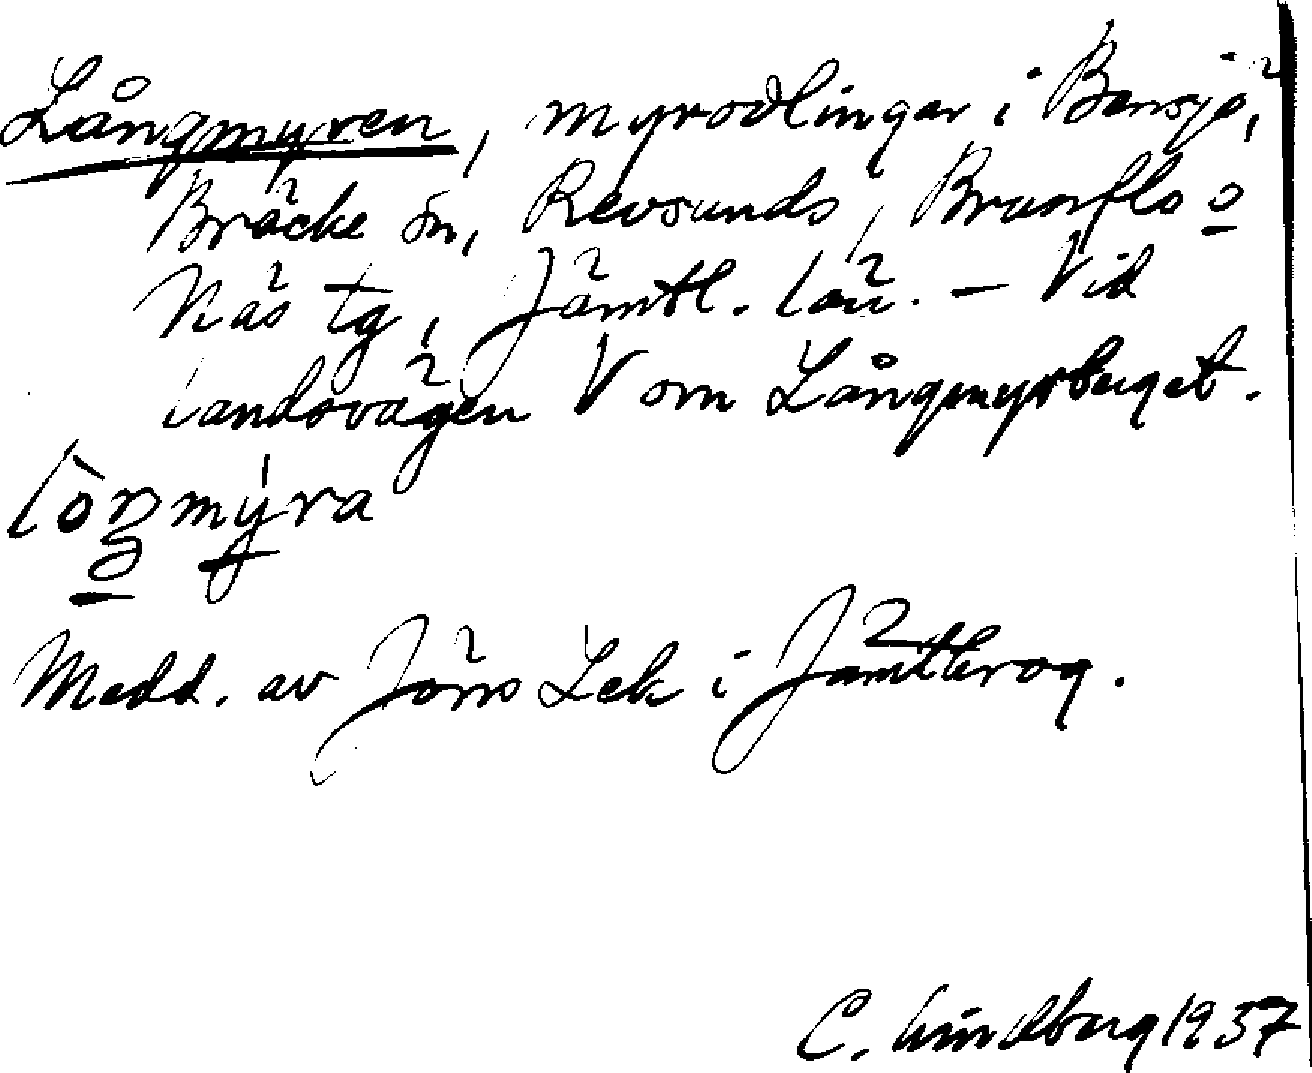 Långmyren, myrodlingar i Bensjö,
Bräcke sn, Revsunds, Brunflo o
Näs tg, Jämtl. län. – Vid
landsvägen V om Långmyrberget.
lòŋmýra
Medd. av Jöns Lek i Jämtkrog.
C. Lindberg 1937